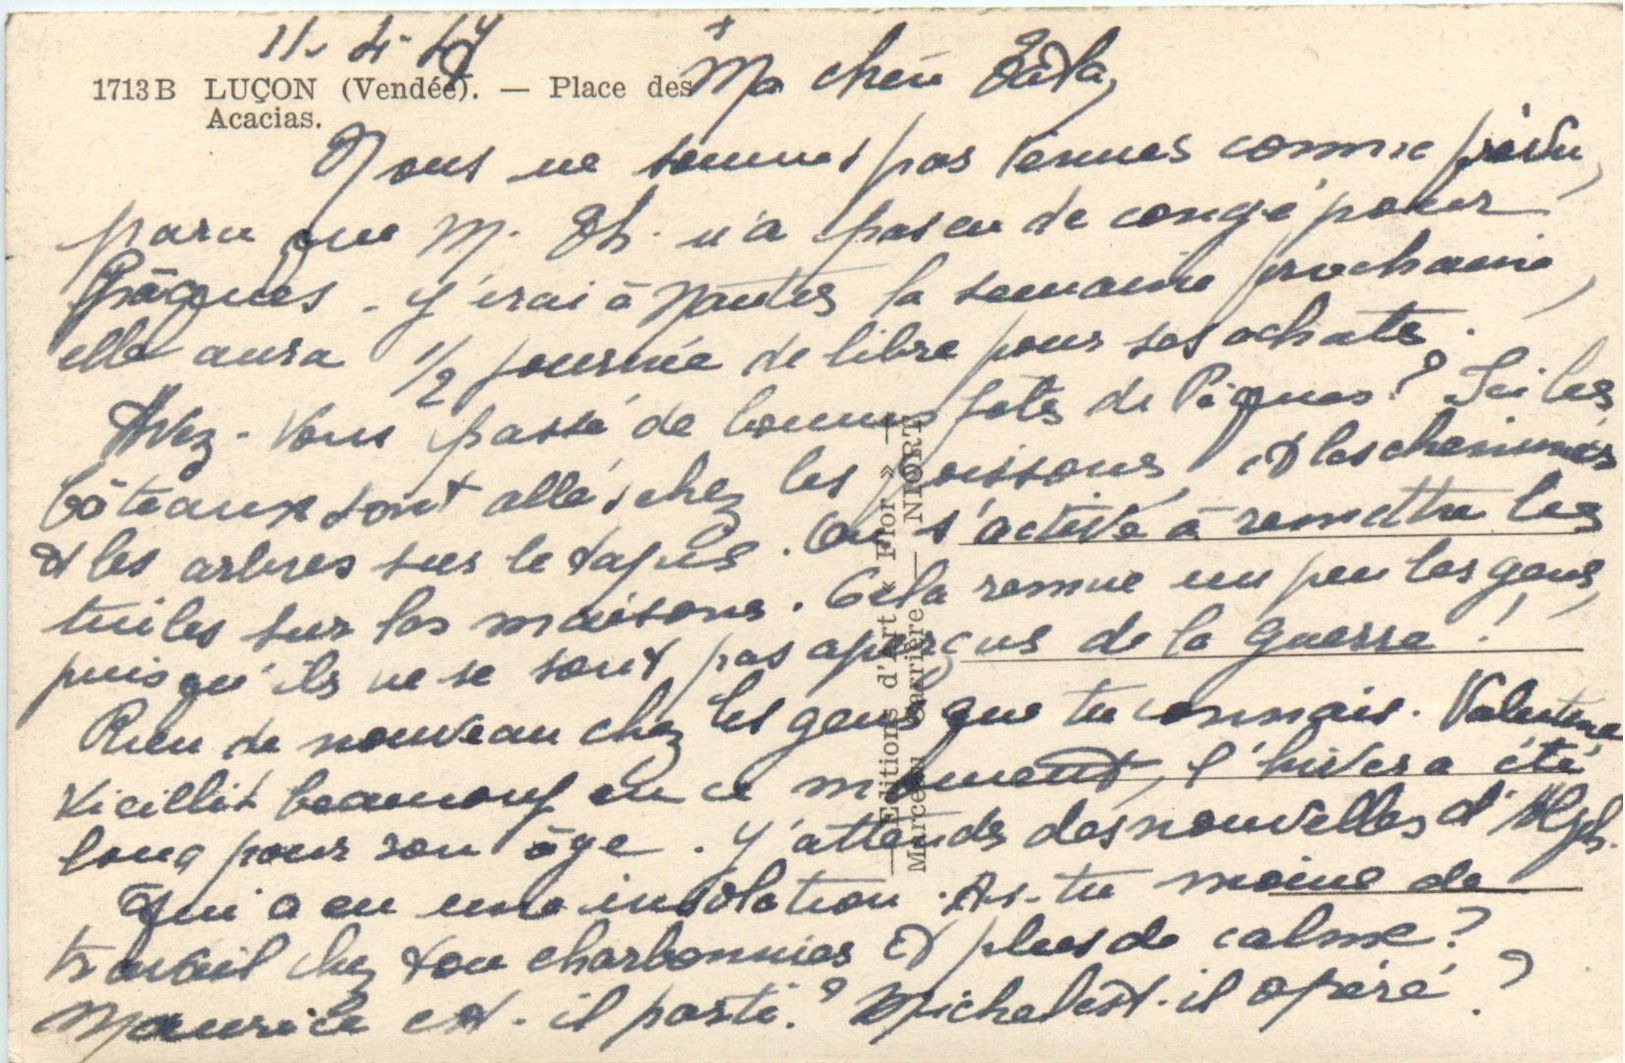 11-4-47
1713B LUÇON (Vendée). — Place des
Acacias.
Ma chère
Nous ne sommes pas venues comme prévu,
parce que M. Th. n'a pas eu de congé pour
Pâques. J'irai à Nantes la semaine prochaine,
elle aura 1/2 journée de libre pour ses achats.
Avez-vous passé de bonnes fêtes de Pâques? Ici les
bâteaux sont allés chez les poissons, et les cheminées
et les arbres sur le tapis. On s'active à remettre les
tuiles sur les maisons. Cela remue un peu les gens,
puisqu'ils ne se sont pas aperçus de la guerre!
Rien de nouveau chez les gens que tu connais. Valentine
vieillit beaucoup en ce moment, l'hiver a été
long pour son âge. J'attends des nouvelles d'Alph.
qui a eu une insolation. As-tu moins de
travail chez ton charbonnier et plus de calme?
Maurice est-il parti? Michel est-il opéré?
— Editions d'Art « Flor » —
Marceau Carrière — NIORT